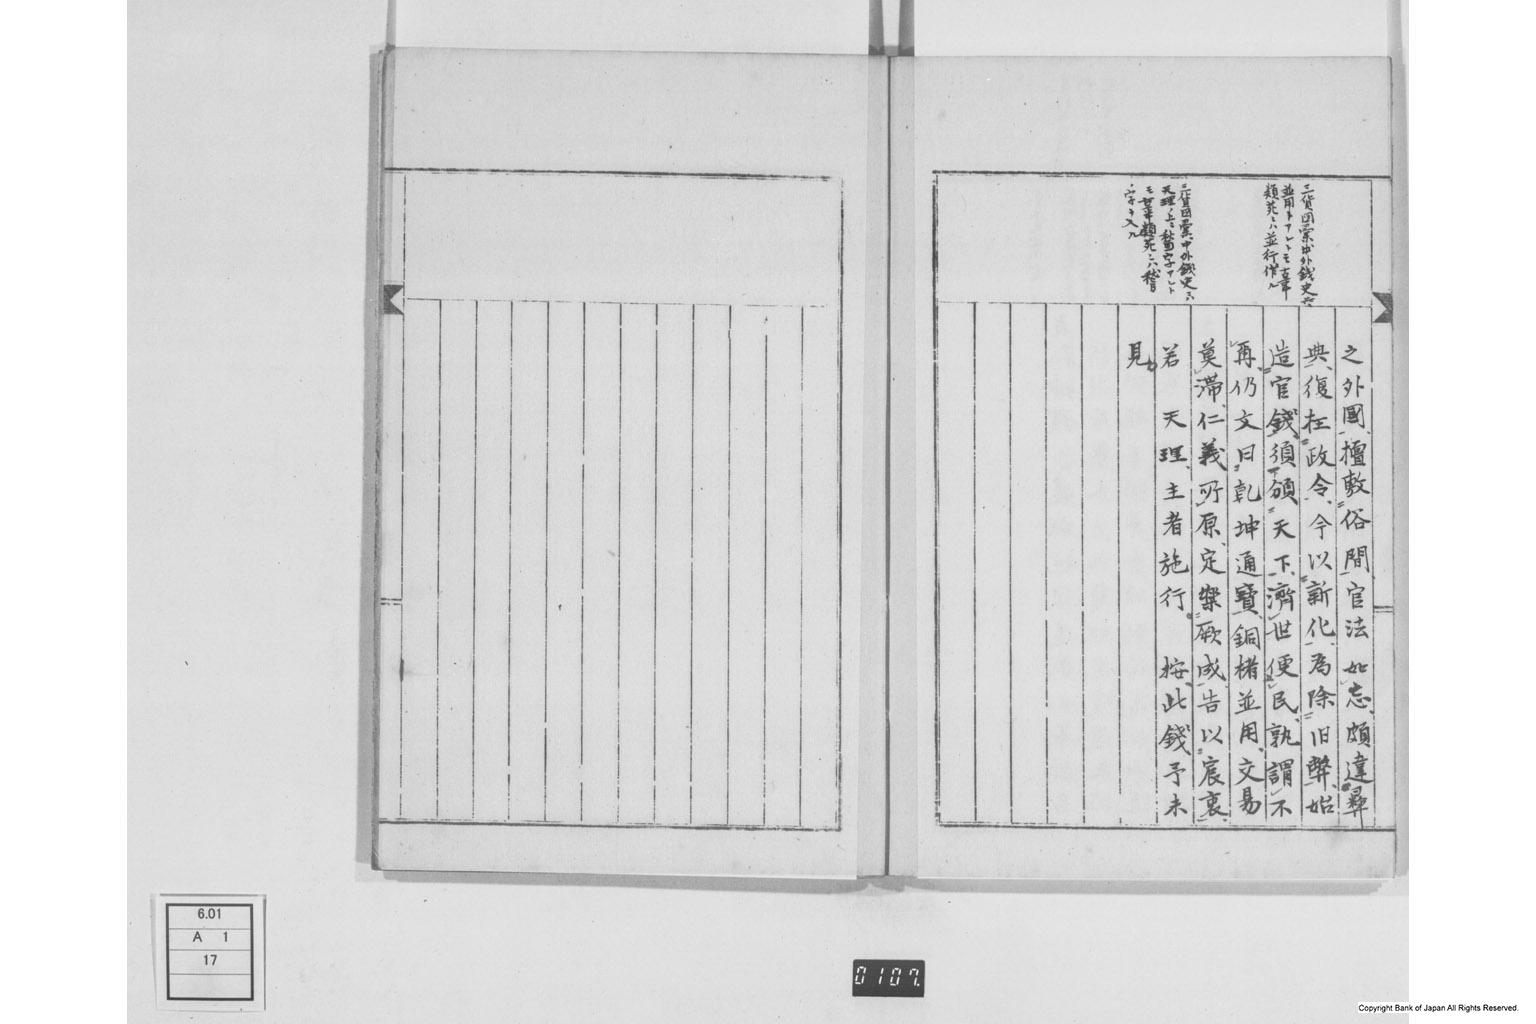 三貨図彙中外銭史共
並用トアレトモ古事
類苑ニハ並行作ル
三貨図彙中外銭史ニハ
天理ノ上ニ稽字アレト
モ古事類苑ニハ稽
字ヲ欠ク
之外國擅敷俗間官法如忘頗違彜
典復在政令今以新化為除旧弊始
造官錢須頒天下濟世便民孰謂不
再仍文曰乾坤通寶銅楮並用交易
莫滞仁義所原定樂厥成告以宸衷
若天理主者施行按此錢予未
見
6.01
A 1
17
0107.
Copyright Bank of Japan All Rights Reserved.